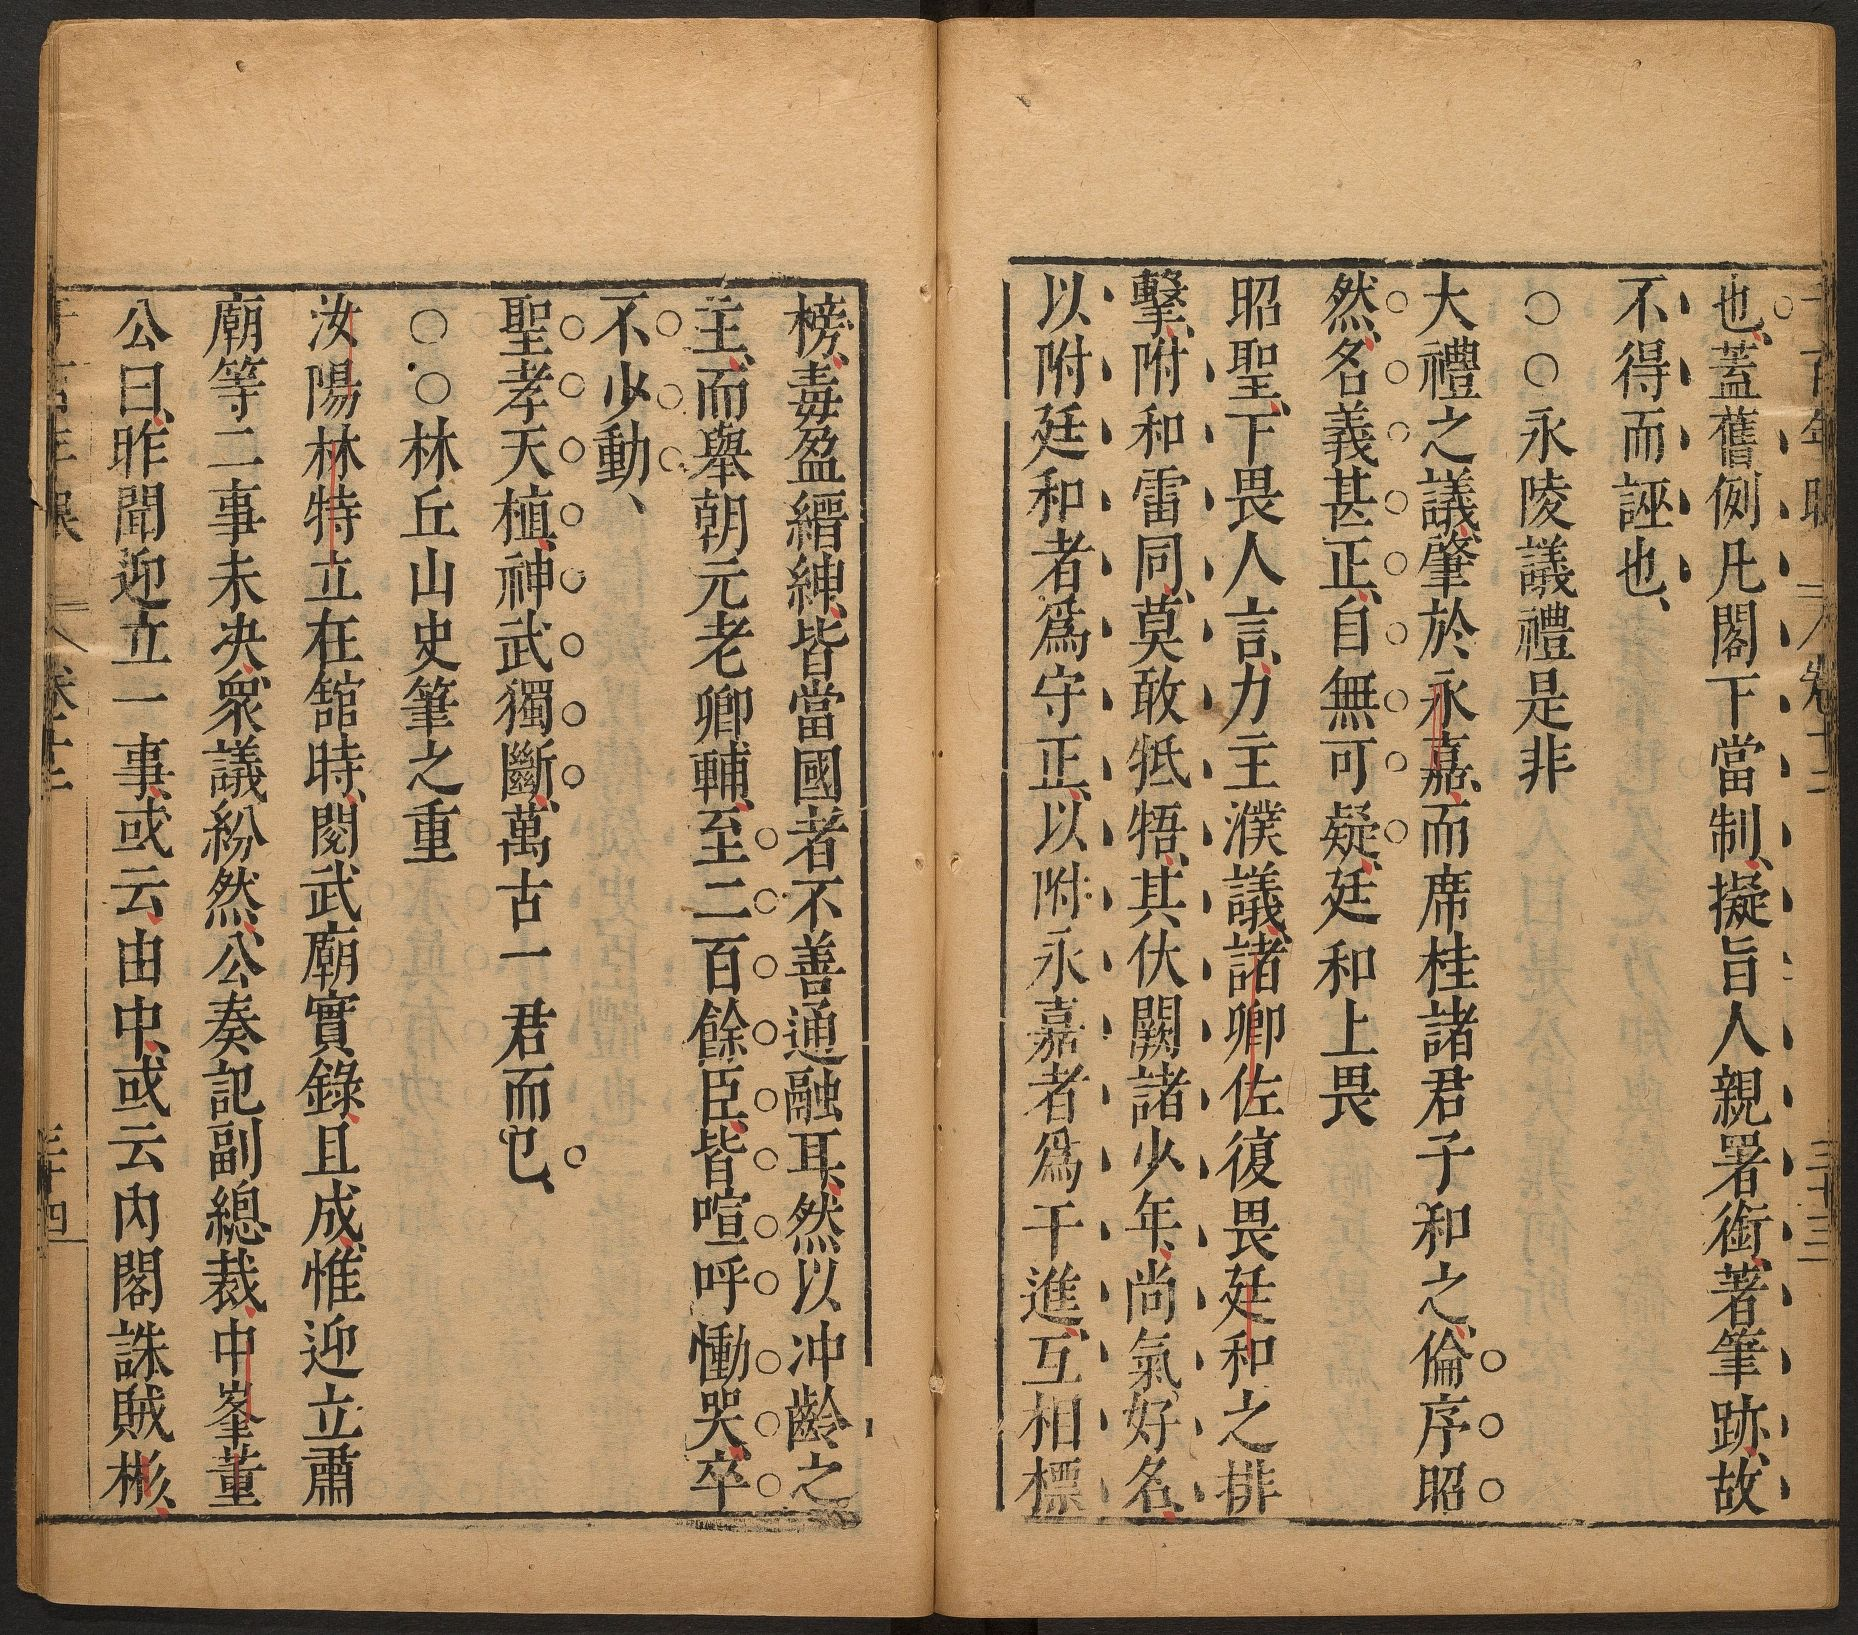 也、蓋舊例凡閣下當制、擬旨人親署銜、著筆跡、故
不得而誣也、
○○永陵議禮是非
大禮之議、肇於永嘉、而席桂諸君子和之、倫序昭
然、名義甚正、自無可疑、廷和上畏
昭聖、下畏人言、力主濮議、諸卿佐復畏廷和之排
擊、附和雷同、莫敢牴牾、其伏闕諸少年、尚氣好名、
以附廷和者爲守正、以附永嘉者爲干進、互相標
榜、毒盈縉紳、皆當國者不善通融耳、然以冲齡之
主、而舉朝元老卿輔、至二百餘臣、皆喧呼慟哭、卒
不少動、
聖孝天植、神武獨斷、萬古一君而已、
○○林丘山史筆之重
汝陽林特立在館時、閱武廟實錄、且成、惟迎立肅
廟等二事未决、衆議紛然、公奏記副總裁、中峯董
公曰、昨聞迎立一事、或云、由中、或云内閣誅賊彬、
卷十二
三十三
三十四